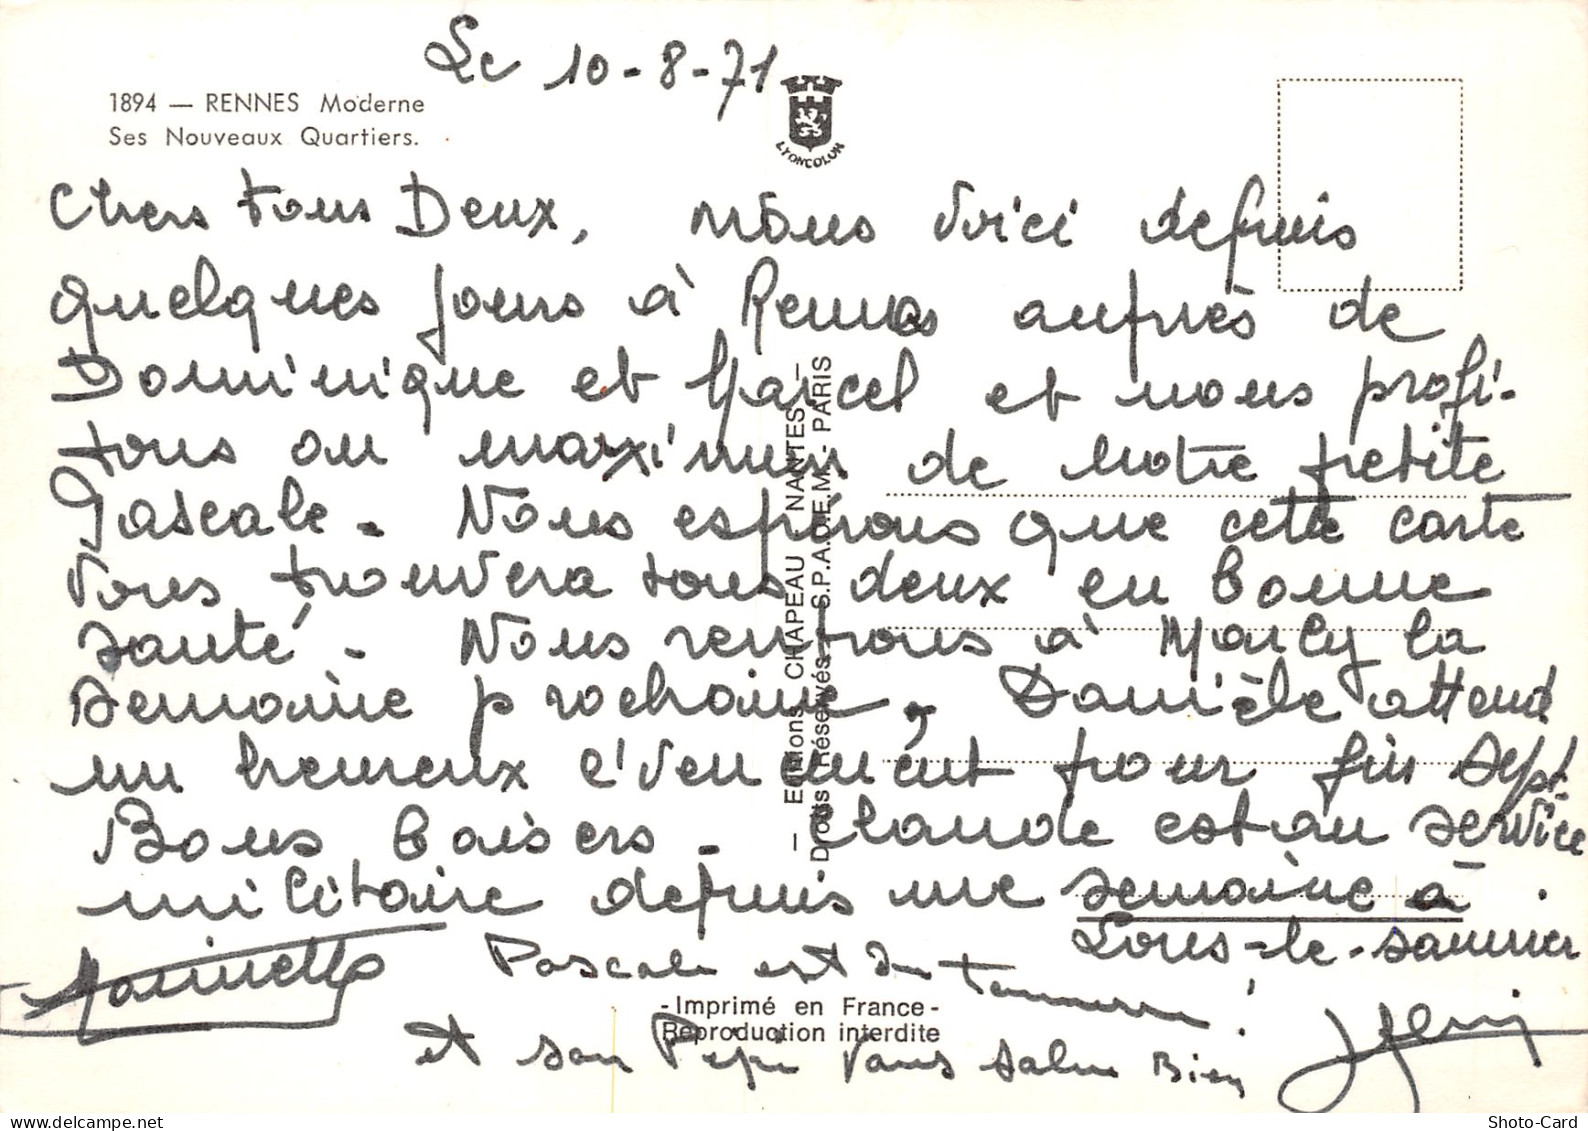 Le 10-8-71
1894 — RENNES Moderne
Ses Nouveaux Quartiers.
LYONCOLOR
Chers tous Deux, nous voici depuis
quelques jours à Rennes auprès de
Dominique et Marcel et nous profi-
tons au maximum de notre petite
Pascale. Nous espérons que cette carte
vous trouvera tous deux en bonne
santé. Nous rentrons à la
semaine prochaine, Danièle attend
un heureux évènement pour fin sept.
Bons baisers. Claude est au service
militaire depuis une semaine à
Lons-le-saunier
Pascale est un tonnerre !
et son Pépé vous salue Bien
— Editions CHAPEAU NANTES —
Droits Réservés S.P.A.D.E.M. - PARIS
-Imprimé en France-
Reproduction interdite
Shoto-Card